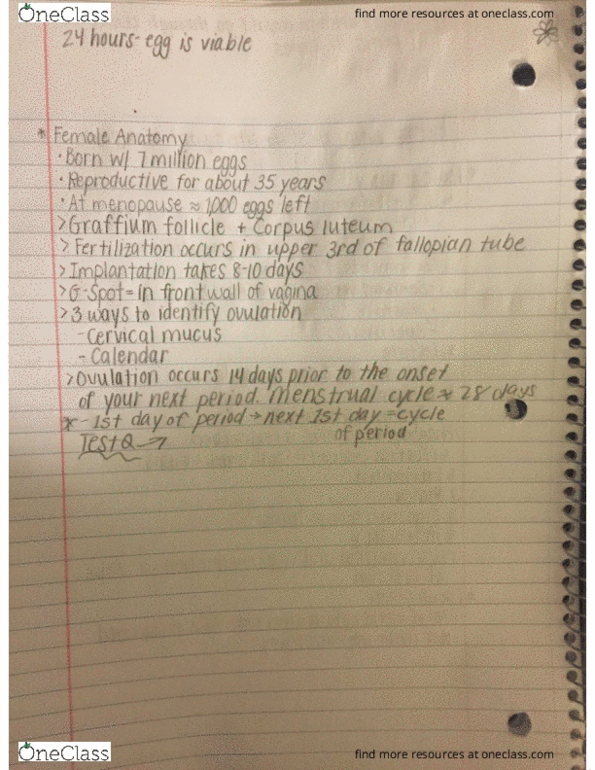 OneClass
find more resources at oneclass.com
24 hours- egg is viable
* Female Anatomy
· Born w/ 7 million eggs
· Reproductive for about 35 years
· At menopause ≈ 1,000 eggs left
> Graffium follicle + Corpus luteum
> Fertilization occurs in upper 3rd of fallopian tube
> Implantation takes 8-10 days
> G-Spot = in front wall of vagina
> 3 ways to identify ovulation
- Cervical mucus
- Calendar
> Ovulation occurs 14 days prior to the onset
of your next period. Menstrual cycle ≈ 28 days
* - 1st day of period → next 1st day = cycle
Test Q → of period
OneClass
find more resources at oneclass.com